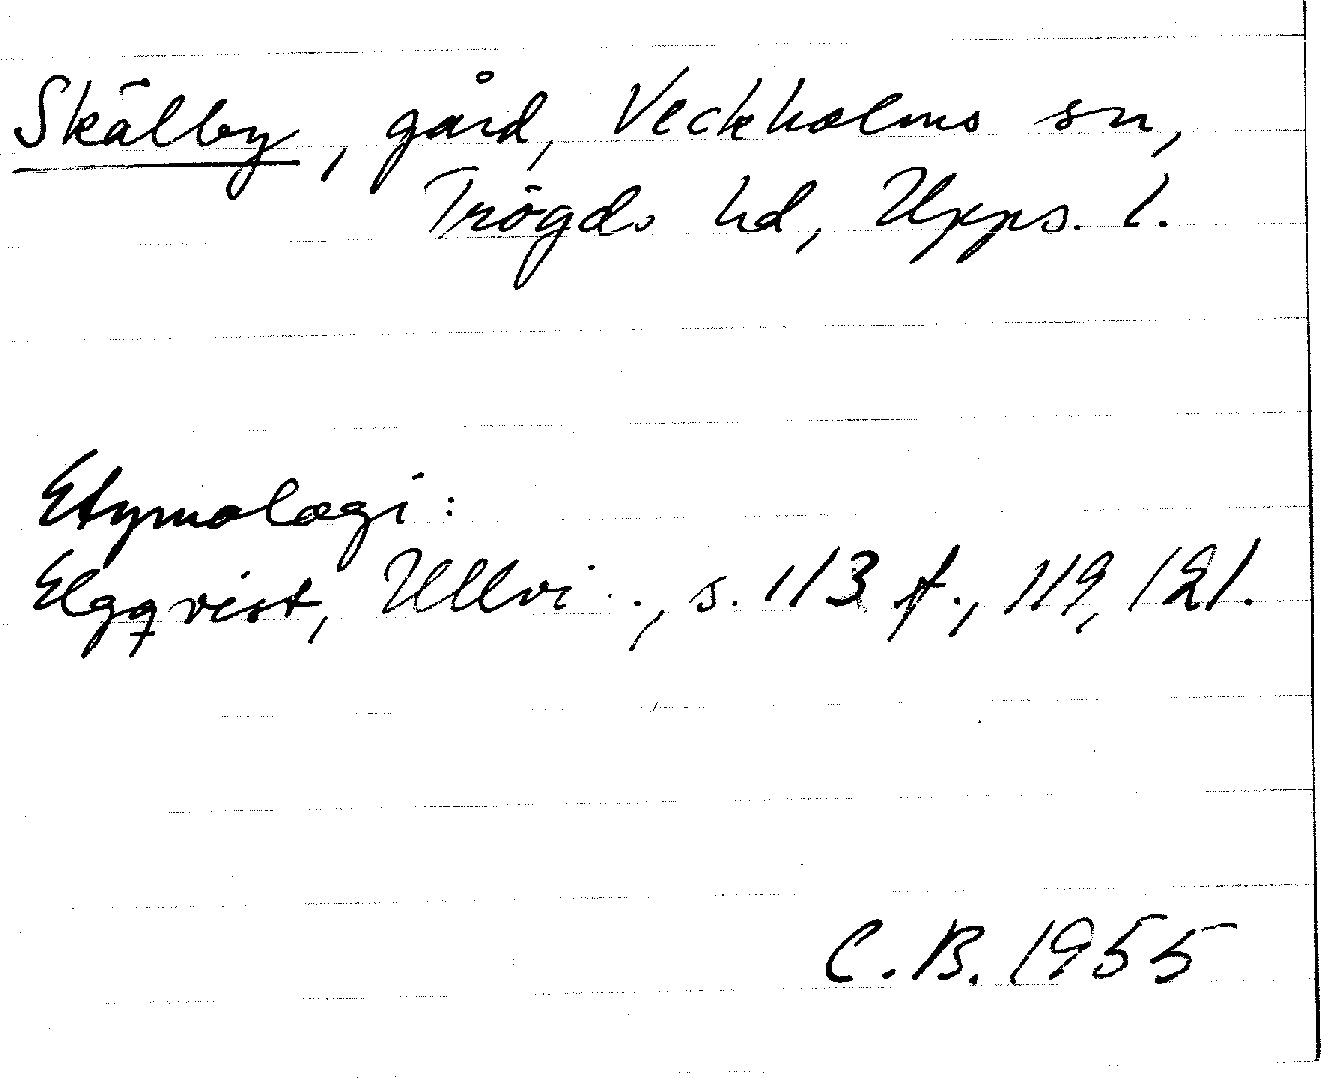 Skälby, gård, Veckholms sn,
Trögds hd, Upps. l.
Etymologi:
Elgqvist, Ullvi .., s. 113 f., 119, 121.
C.B. 1955